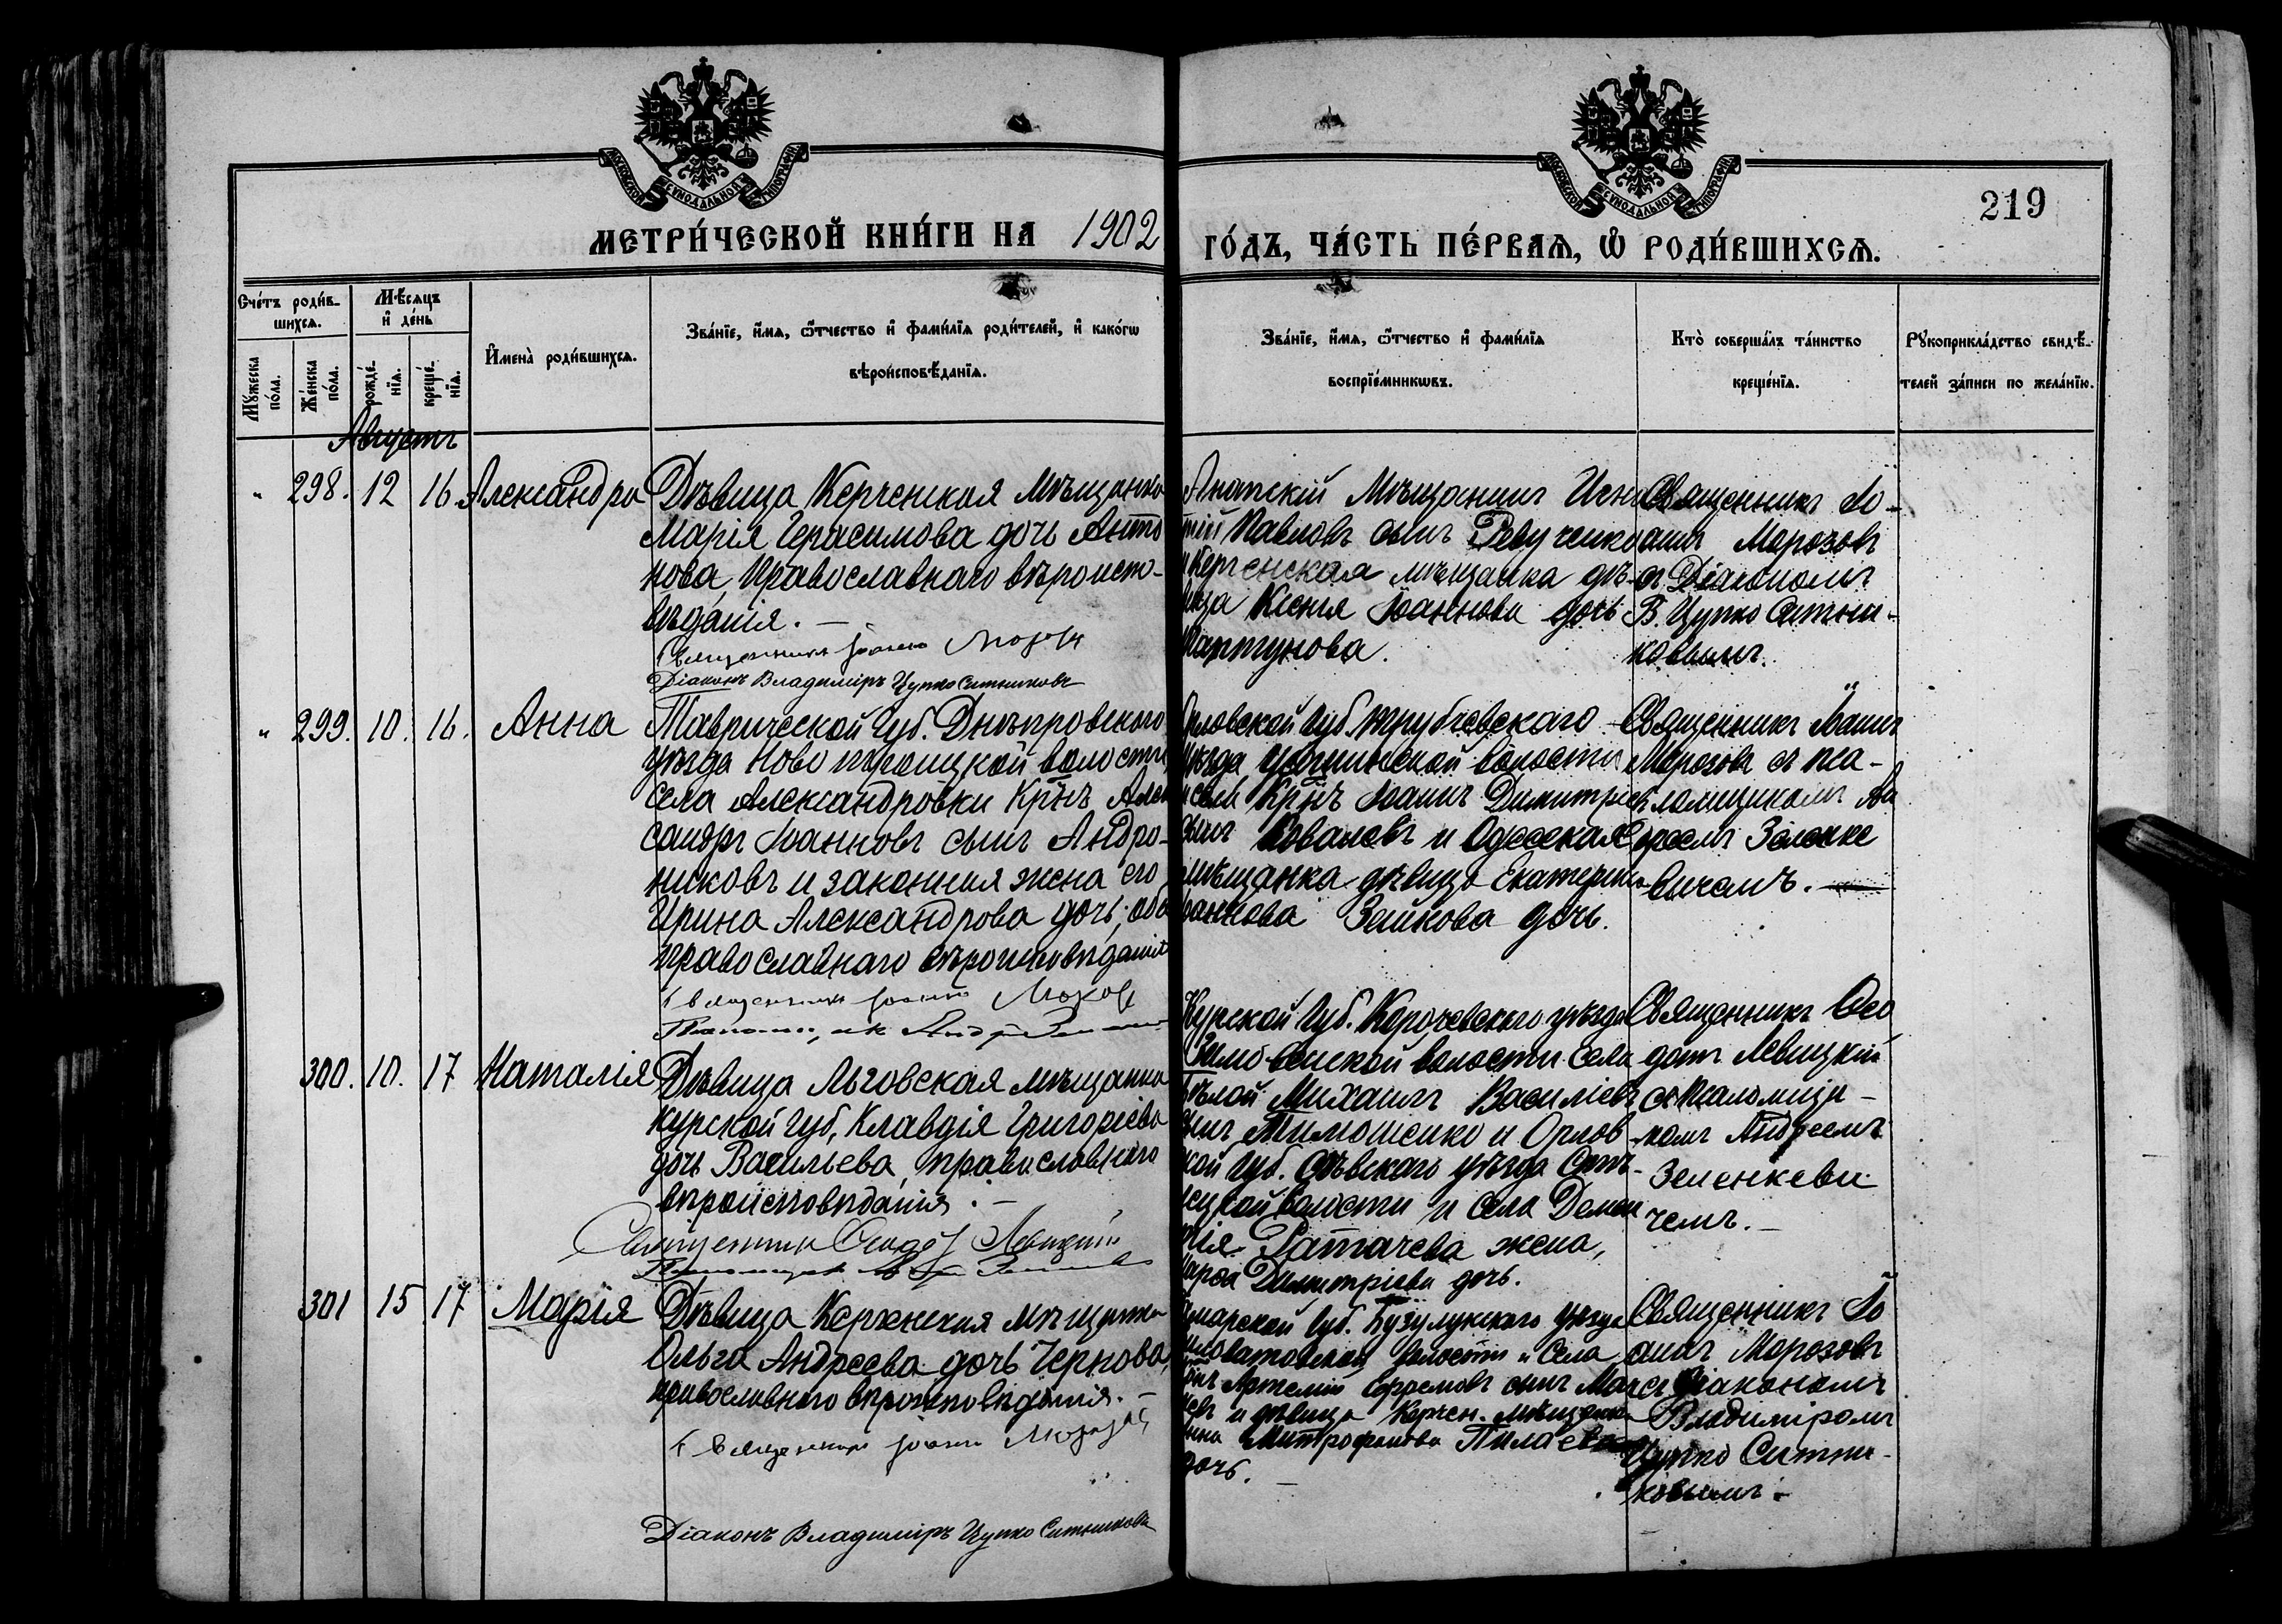 МОСКОВСКОЙ СѴНОДАЛЬНОЙ ТИПОГРАФІИ
МОСКОВСКОЙ СѴНОДАЛЬНОЙ ТИПОГРАФІИ
219
МЕТРИ́ЧЕСКОЙ КНИ́ГИ НА 1902
ГО́ДЪ, ЧА́СТЬ ПЕ́РВАѦ, Ѡ҆ РОДИ́ВШИХСѦ.
Сче́тъ роди́в-
шихсѧ.
Мꙋ́жеска по́ла.
Же́нска по́ла.
Мѣ́сѧцъ
и҆ де́нь
рожде́-нїѧ.
креще́-нїѧ.
И҆мена̀ роди́вшихсѧ.
Зва́нїе, и҆́мѧ, ѻ҆́тчество и҆ фами́лїѧ роди́телей, и҆ како́гѡ
вѣроисповѣ́данїѧ.
Зва́нїе, и҆́мѧ, ѻ҆́тчество и҆ фами́лїѧ
воспрїе́мникѡвъ.
Кто̀ соверша́лъ та́инство
креще́нїѧ.
Рꙋкоприкла́дство свидѣ́-
телей за́писи по жела́нїю.
Августъ
" 298. 12 16. Александра
Дѣвица Керченская мѣщанка
Марія Герасимова дочь Анто
нова, Православнаго вѣроиспо-
вѣданія. —
Священникъ Іоаннъ Морозовъ
Діаконъ Владиміръ Цупко Ситниковъ
Анапскій Мѣщанинъ Игна
тій Павловъ сынъ Ревученко
и Керченская мѣщанка дѣ-
вица Ксенія Іоаннова дочь
Священникъ Іо-
аннъ Морозовъ
съ Діакономъ
В. Цупко Ситни-
ковымъ.
" 299. 10. 16. Анна
Таврической Губ. Днѣпровскаго
уѣзда Ново троицкой волости,
села Александровки Кр̃нъ Алек
сандръ Іоанновъ сынъ Андро-
никовъ и законная жена его
Ирина Александрова дочь; оба
православнаго вѣроисповѣданія
Священникъ Іоаннъ Морозовъ
Орловской Губ. Трубчевскаго
уѣзда волости
и села Кр̃нъ Іоаннъ Димитріевъ
сынъ Ковалевъ и Одесская
мѣщанка дѣвица Екатерина
Іоаннова Зайкова дочь.
Священникъ Іоаннъ
Морозовъ съ пса-
ломщикомъ Ан
дреемъ Зеленке
вичемъ. —
300. 10. 17 Наталія
Дѣвица Льговская мѣщанка
Курской Губ, Клавдія Григоріева
дочь Васильева, православнаго
вѣроисповѣданія. —
Священникъ Ѳеодотъ Левицкій
Курской Губ. Корочевскаго уѣзда
волости села
Бѣлой Михаилъ Василіевъ
сынъ Тимошенко и Орлов
ской Губ. Сѣвскаго уѣзда
волости и села
жена,
Димитріева дочь.
Священникъ Ѳео
дотъ Левицкій
съ Псаломщи-
комъ Андреемъ
Зеленкеви
чемъ. —
301 15 17 Марія
Дѣвица Керченская мѣщанка
Ольга Андреева дочь Чернова,
православнаго вѣроисповѣданія. —
Священникъ Іоаннъ Морозовъ
Діаконъ Владиміръ Цупко Ситниковъ
Самарской Губ. Бузулукскаго уѣзда
волости и Села
Кр̃нъ Артемій Ефремовъ сынъ
и дѣвица Керчен. мѣщанка
Анна Митрофанова Пилаева
дочь. —
Священникъ Іо
аннъ Морозовъ
съ Діакономъ
Владиміромъ
Цупко Ситни-
ковымъ. —